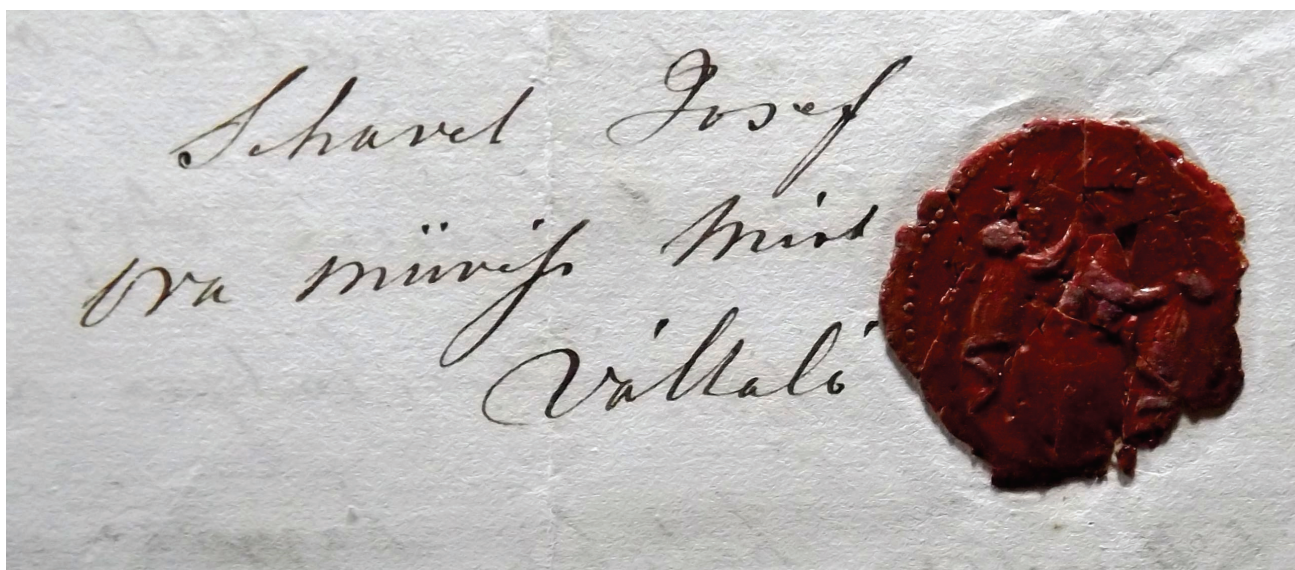 Schavel Josef
ora művesh mint
Vállaló